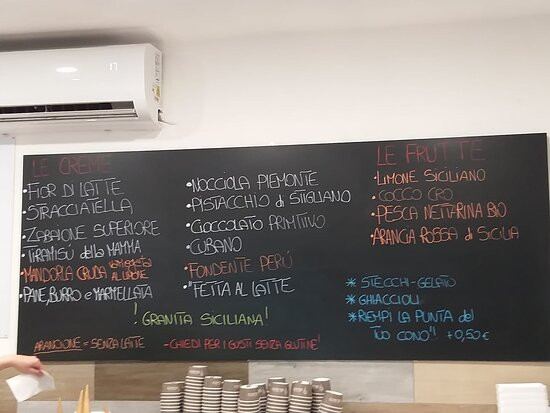 LE CREME
•FIOR DI LATTE
•STRACCIATELLA
•ZABAIONE SUPERIORE
•TIRAMISÙ della MAMMA
•MANDORLA CRUDA
•PANE, BURRO e MARMELLATA
•NOCCIOLA PIEMONTE
•PISTACCHIO di STIGLIANO
•CIOCCOLATO PRIMITIVO
•CUBANO
•FONDENTE PERÚ
•"FETTA AL LATTE
! GRANITA SICILIANA!
ARANCIONE = SENZA LATTE
-CHIEDI PER I GUSTI SENZA GLUTINE!
LE FRUTTE
•LIMONE SICILIANO
•COCCO
•PESCA NETTARINA BIO
•ARANCIA ROSSA di SICILIA
* STECCHI-GELATO
* GHIACCIOLI
*RIEMPI LA PUNTA del
TUO CONO"! +0,50€